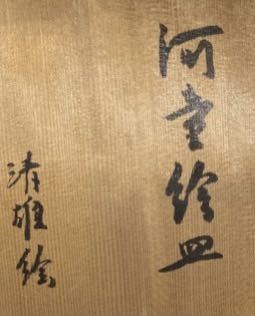 河童絵皿
清雄絵